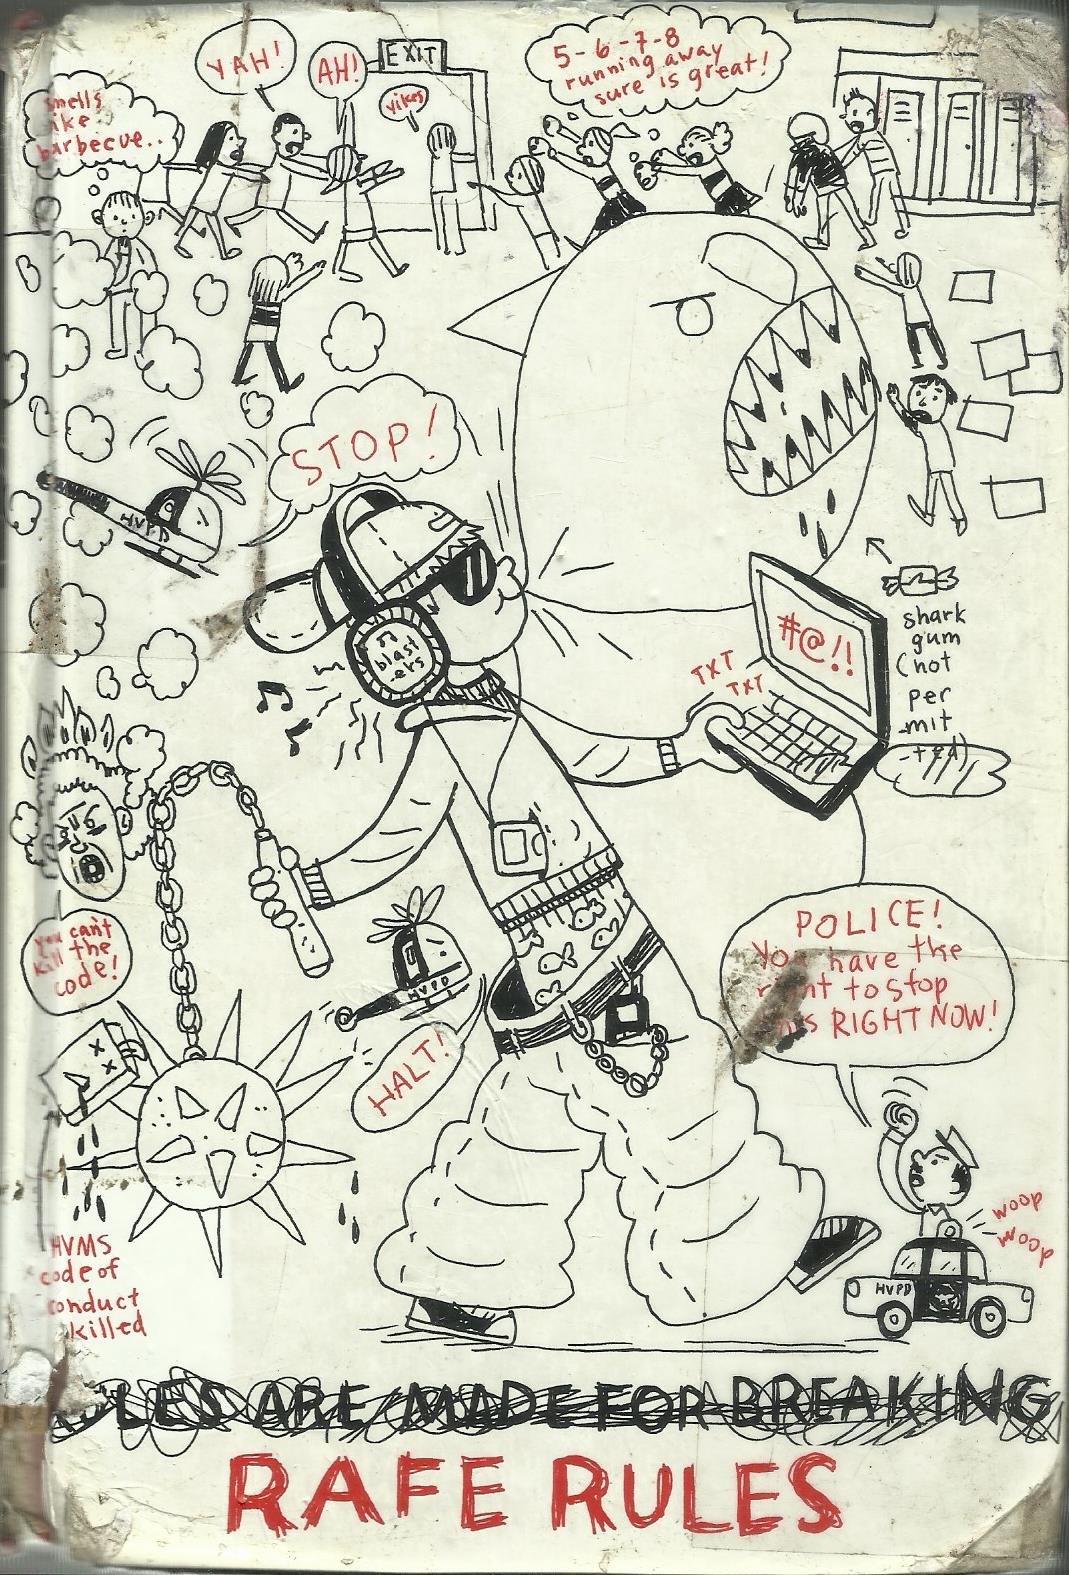 YAH!
AH!
EXIT
yikes
5-6-7-8
running away
sure is great!
smells
like
barbecue..
STOP!
HVPD
blast
-ers
#@!!
TXT
TXT
shark
gum
(not
per
-mit
-ted)
you can't
kill the
code!
HVPD
HALT!
POLICE!
You have the
right to stop
this RIGHT NOW!
woop
woop
HVPD
HVMS
code of
conduct
killed
RULES ARE MADE FOR BREAKING
RAFE RULES